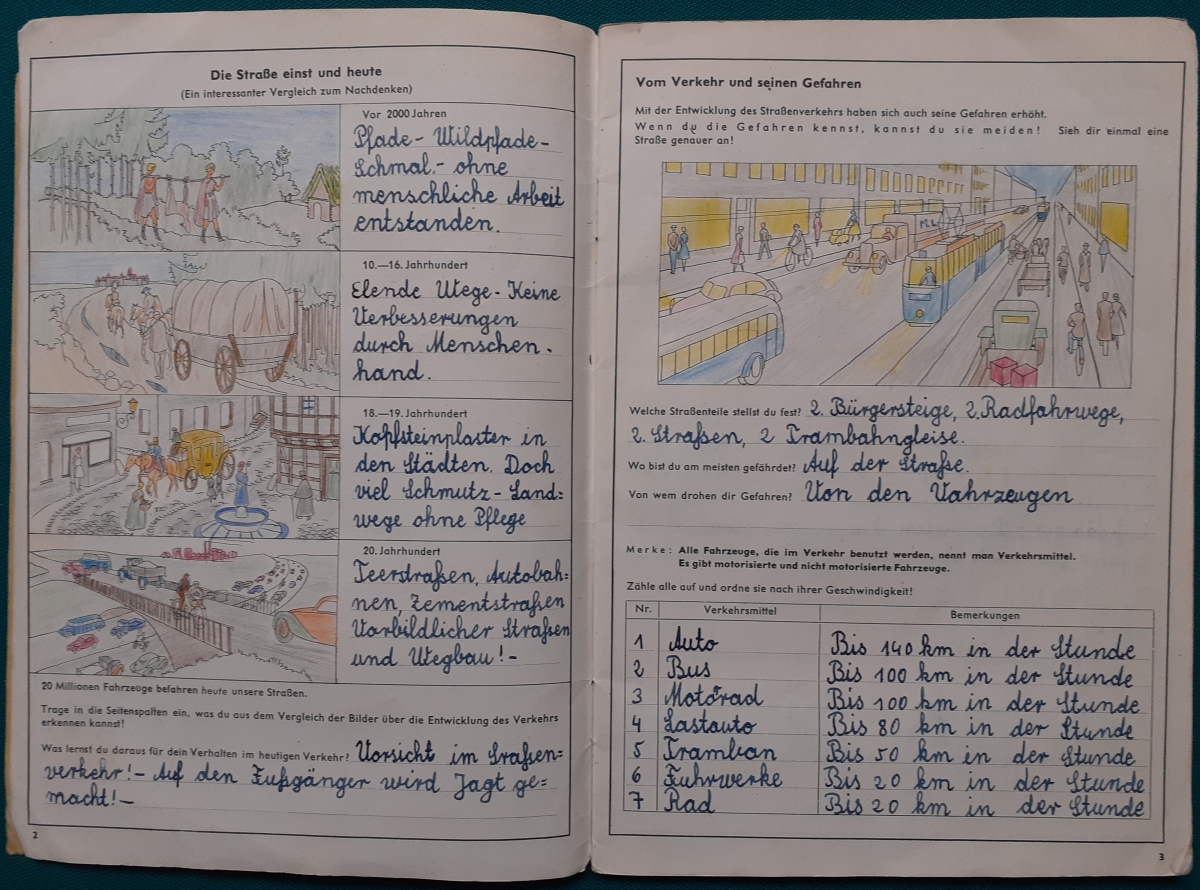 Die Straße einst und heute
(Ein interessanter Vergleich zum Nachdenken)
Vor 2000 Jahren
Pfade - Wildpfade -
Schmal - ohne
menschliche Arbeit
entstanden.
10.—16. Jahrhundert
Elende Wege - Keine
Verbesserungen
durch Menschen -
hand.
18.—19. Jahrhundert
Kopfsteinplaster in
den Städten. Doch
viel Schmutz - Land=
wege ohne Pflege
20. Jahrhundert
Teerstraßen, Autobah=
nen, Zementstraßen
Vorbildlicher Straßen
und Wegbau! -
20 Millionen Fahrzeuge befahren heute unsere Straßen.
Trage in die Seitenspalten ein, was du aus dem Vergleich der Bilder über die Entwicklung des Verkehrs
erkennen kannst!
Was lernst du daraus für dein Verhalten im heutigen Verkehr? Vorsicht im Straßen=
verkehr! - Auf den Fußgänger wird Jagt ge=
macht! -
2
Vom Verkehr und seinen Gefahren
Mit der Entwicklung des Straßenverkehrs haben sich auch seine Gefahren erhöht.
Wenn du die Gefahren kennst, kannst du sie meiden! Sieh dir einmal eine
Straße genauer an!
Welche Straßenteile stellst du fest? 2. Bürgersteige, 2. Radfahrwege,
2. Straßen, 2 Trambahngleise.
Wo bist du am meisten gefährdet? Auf der Straße.
Von wem drohen dir Gefahren? Von den Vahrzeugen
Merke: Alle Fahrzeuge, die im Verkehr benutzt werden, nennt man Verkehrsmittel.
Es gibt motorisierte und nicht motorisierte Fahrzeuge.
Zähle alle auf und ordne sie nach ihrer Geschwindigkeit!
Nr. Verkehrsmittel Bemerkungen
1 Auto Bis 140 km in der Stunde
2 Bus Bis 100 km in der Stunde
3 Motorad Bis 100 km in der Stunde
4 Lastauto Bis 80 km in der Stunde
5 Tramban Bis 50 km in der Stunde
6 Fuhrwerke Bis 20 km in der Stunde
7 Rad Bis 20 km in der Stunde
3